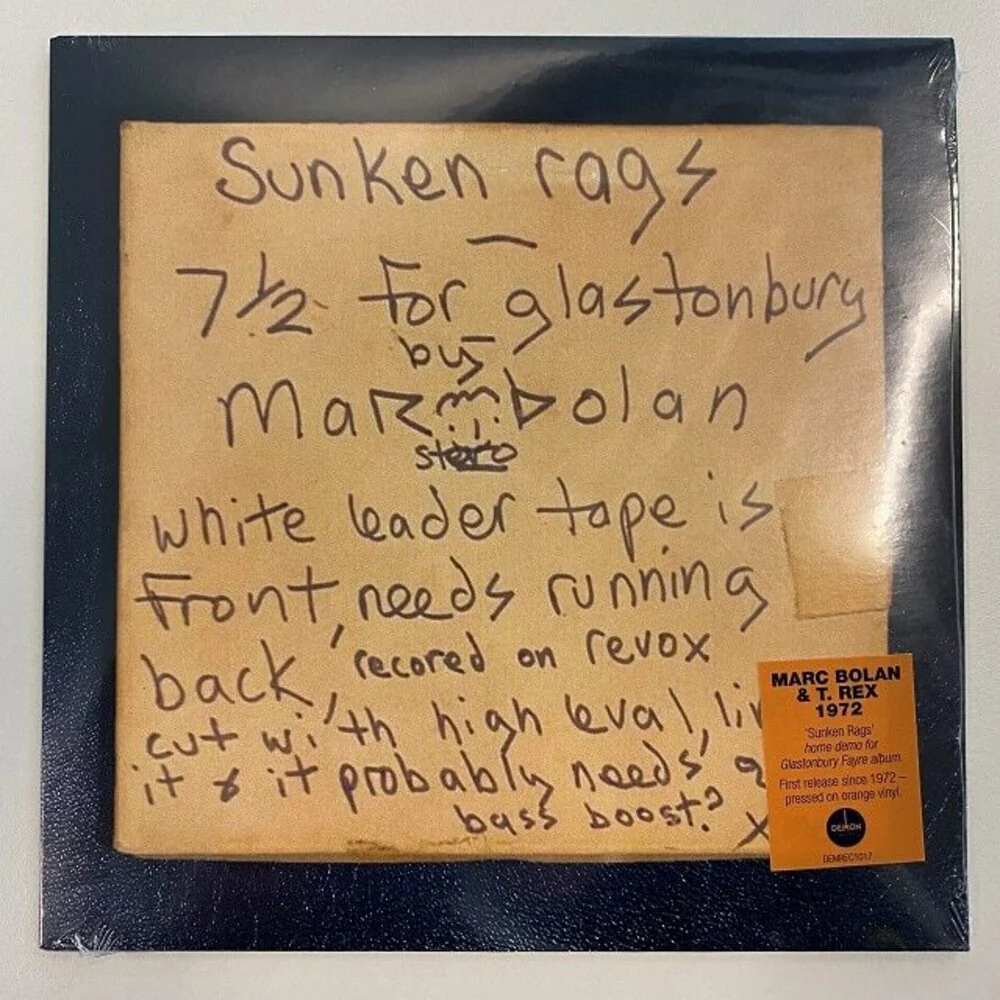 Sunken rags
—
7 1/2 for glastonbury
by
Marc bolan
white leader tape is
front, needs running
back, recored on revox
cut with high leval, li
it & it probably needs a
bass boost?
x
MARC BOLAN
& T. REX
1972
'Sunken Rags'
home demo for
Glastonbury Fayre album.
First release since 1972 –
pressed on orange vinyl.
DEMON
DEMREC1017